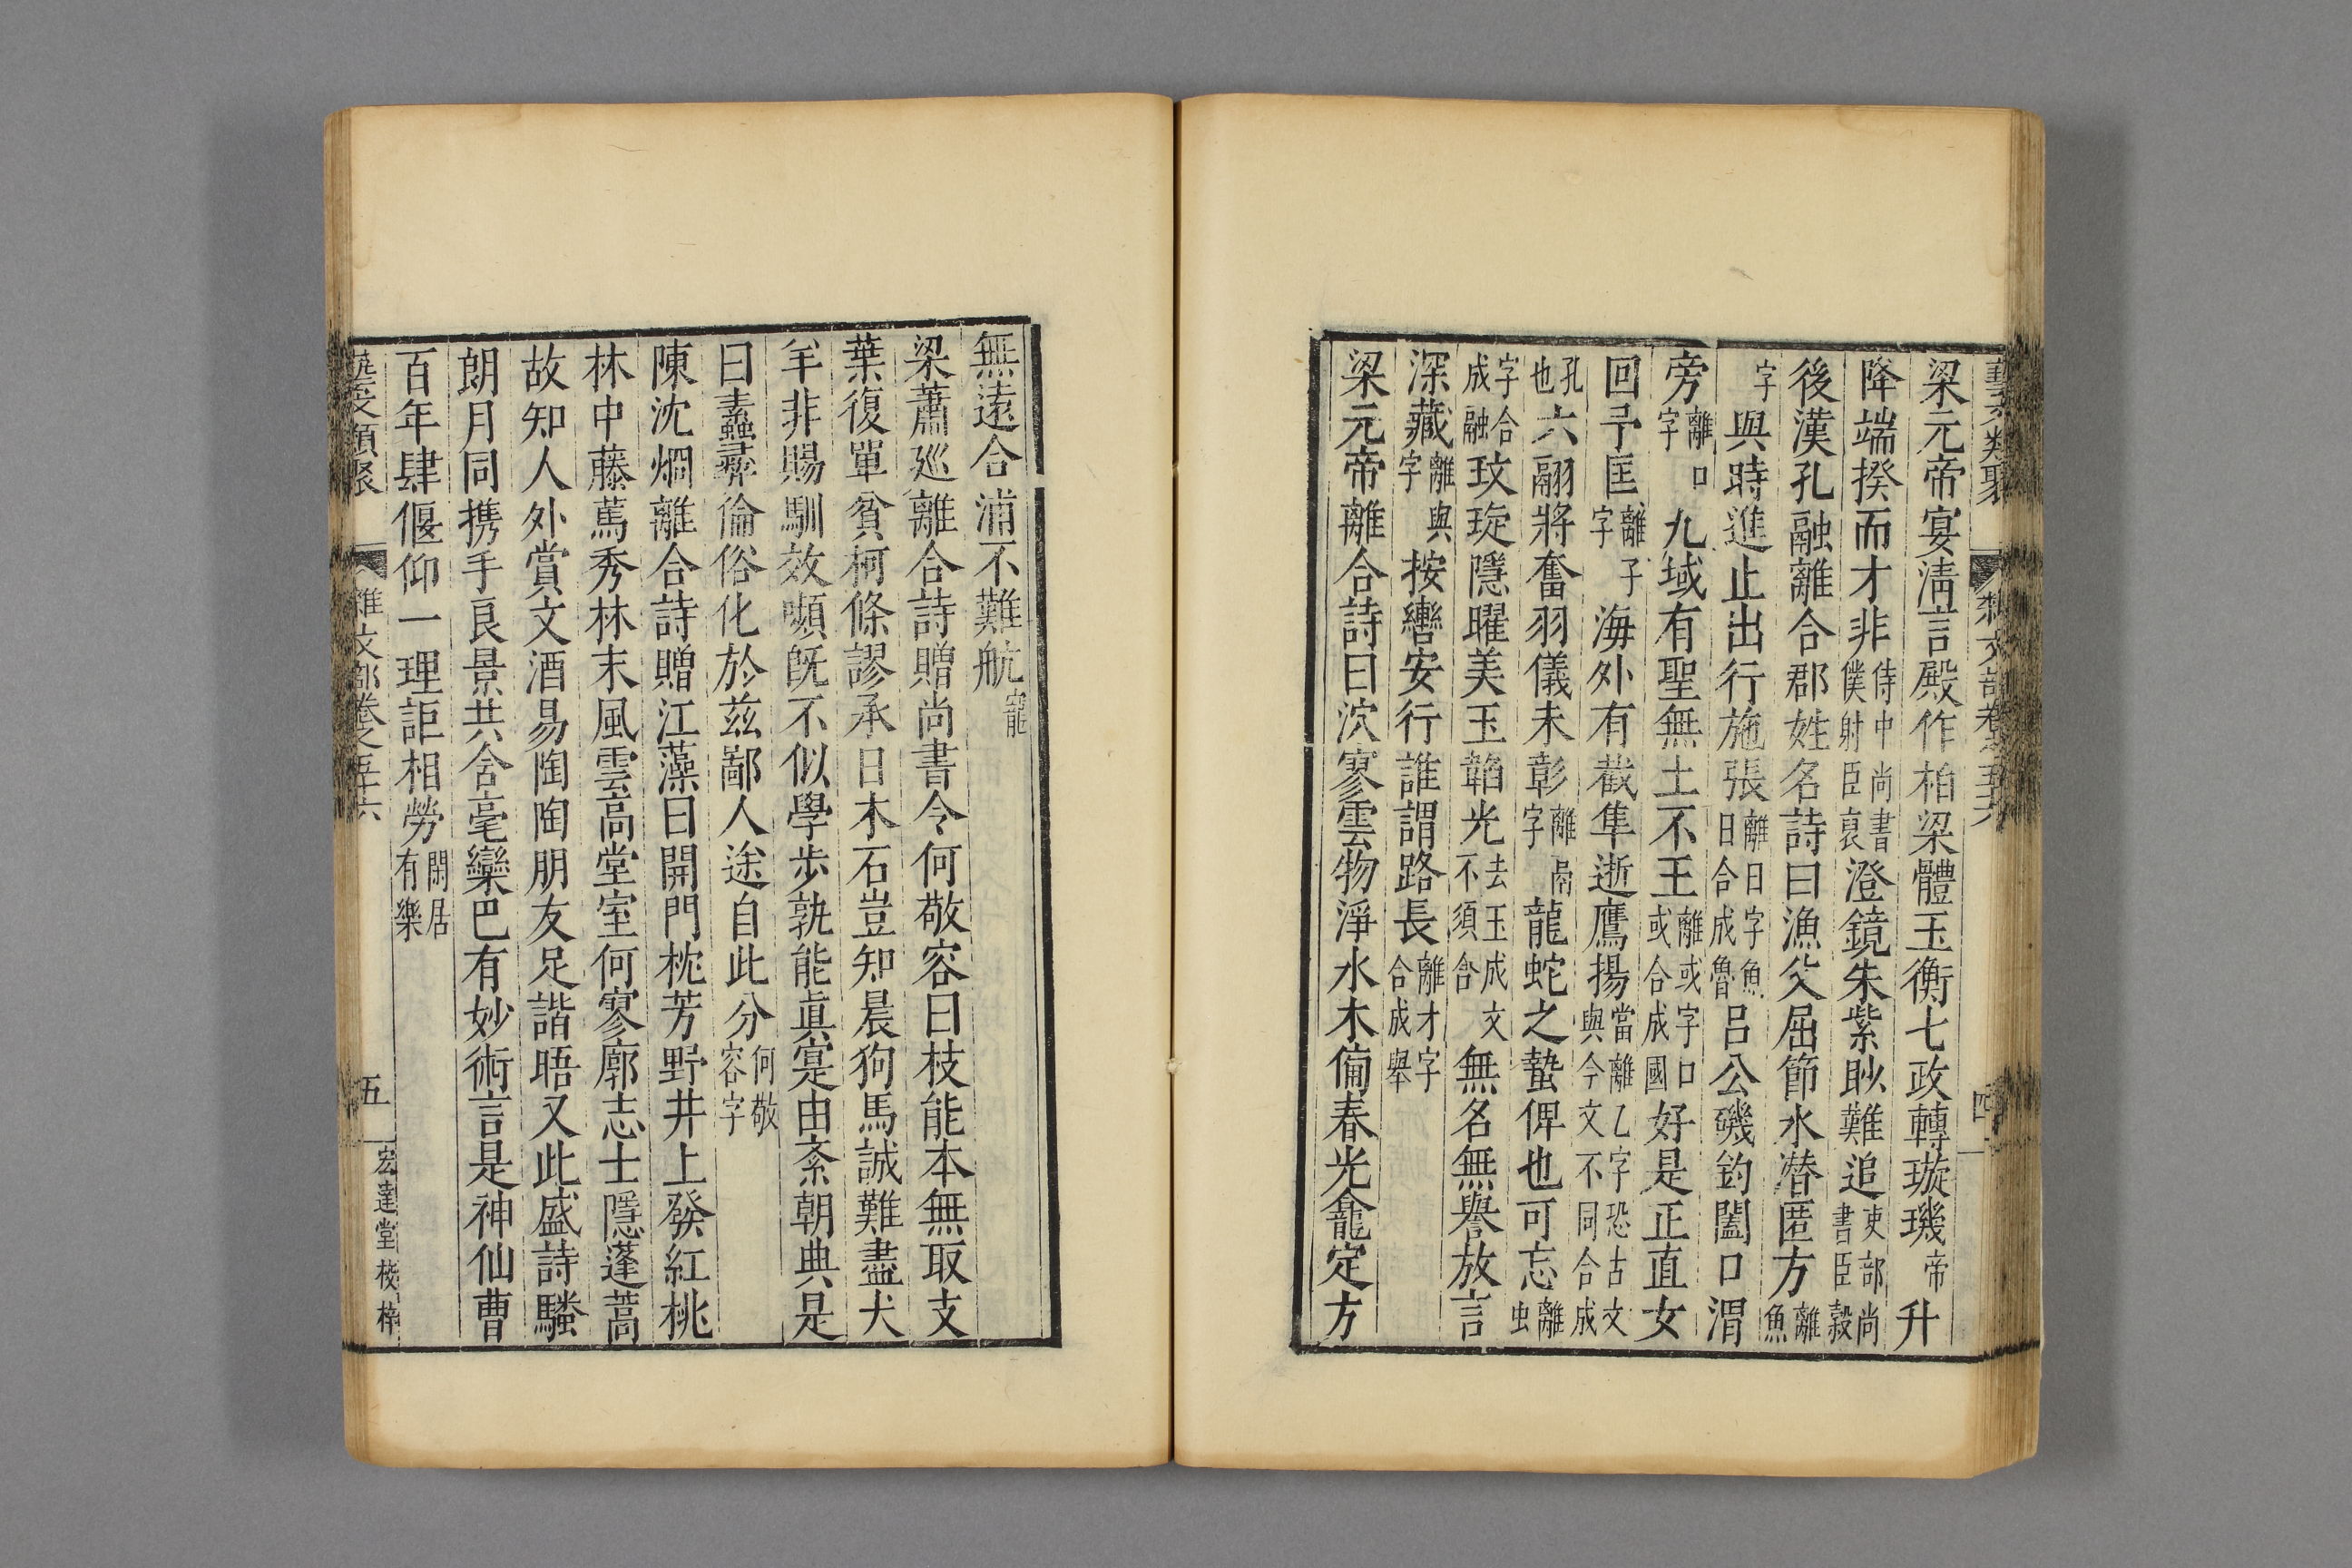 藝文類聚 雜文部卷之五十六 四
梁元帝宴淸言殿作柏梁體玉衡七政轉璇璣帝升
降端揆而才非侍中尚書僕射臣裒澄鏡朱紫眇難追吏部尚書臣穀
後漢孔融離合郡姓名詩曰漁父屈節水潛匿方離魚
字與時進止出行施張離日字魚日合成魯呂公磯釣闔口渭
旁離口字九域有聖無土不王離或字口或合成國好是正直女
回予匡離子字海外有截隼逝鷹揚當離乙字恐古文與今文不同合成
孔也六翮將奮羽儀未彰離鬲字龍蛇之蟄俾也可忘離虫
字合成融玟琁隱曜美玉韜光去玉成文不須合無名無譽放言
深藏離與字按轡安行誰謂路長離才字合成舉
梁元帝離合詩曰泬寥雲物淨水木備春光龕定方
無遠合浦不難航寵
梁蕭廵離合詩贈尚書令何敬容曰枝能本無取支
葉復單貧柯條謬承日木石豈知晨狗馬誠難盡犬
羊非賜馴效嚬旣不似學步孰能眞寔由紊朝典是
曰蠹彛倫俗化於茲鄙人途自此分何敬容字
陳沈炯離合詩贈江藻曰開門枕芳野井上發紅桃
林中藤蔦秀林末風雲高堂室何寥廓志士隱蓬蒿
故知人外賞文酒易陶陶朋友足諧晤又此盛詩騷
朗月同携手良景共含毫欒巴有妙術言是神仙曹
百年肆偃仰一理詎相勞閑居有樂
藝文類聚 雜文部卷之五十六 五 宏達堂校梓